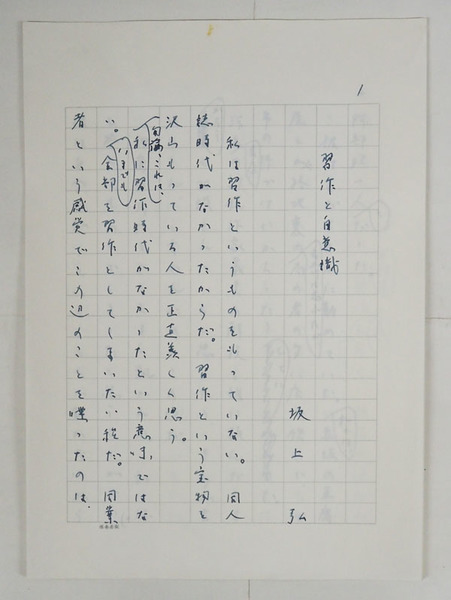 1
習作と自意識
坂上弘
私は習作というものをもっていない。同人
誌時代がなかったからだ。習作という宝物を
沢山もっている人を正直羨しく思う。
勿論、これは、
私に習作時代がなかったという意味ではな
いまでも
い。全部を習作としてしまいたい程だ。同業
者という感覚でこの辺のことを喋ったのは、